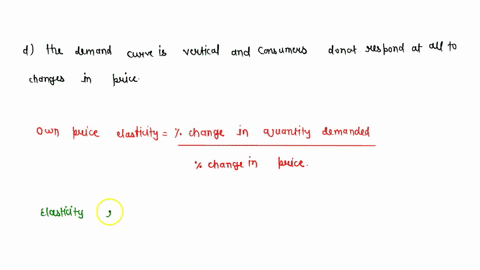 d) the demand curve is vertical and consumers donot respond at all to
changes in price.
Own price elasticity = % change in quantity demanded
% change in price.
Elasticity ,